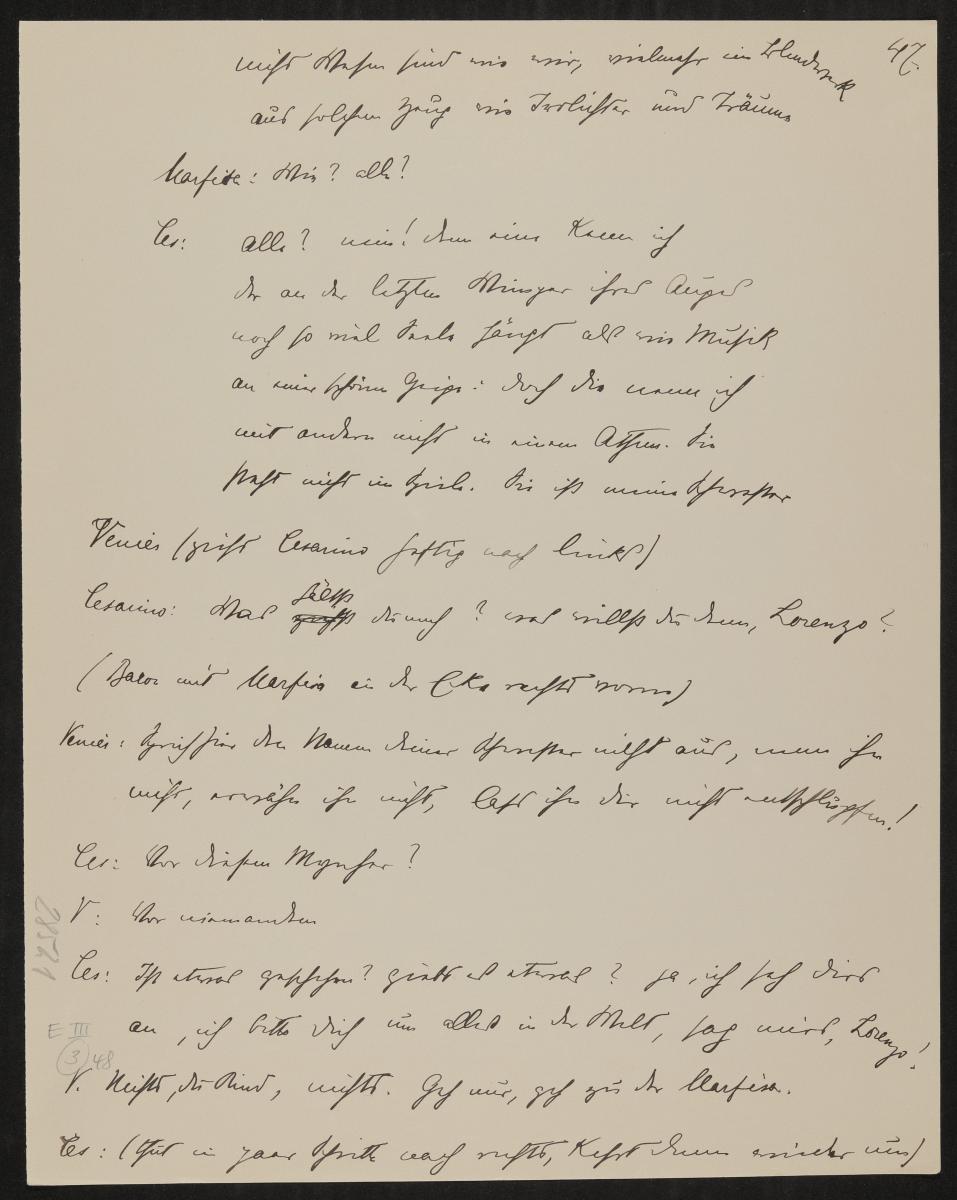 47.
nicht Wesen sind wie wir, vielmehr ein Blendwerk
aus solchem Zeug wie Irrlichter und Träume
Marfisa: Wie? alle?
Ces: alle? nein! denn eine kenn ich
der an der letzten Wimper ihres Auges
noch so viel Seele hängt als wie Musik
an einer schönen Geige: doch die nenn ich
mit andern nicht in einem Athem. Sie
passt nicht ins Spiel. Sie ist meine Schwester
Venier (zieht Cesarino heftig nach links)
Cesarino: Was hältst du mich? was willst du denn, Lorenzo?
(Baron mit Marfisa in der Ecke rechts vorne)
Venier: Sprich hier den Namen deiner Schwester nicht aus, nenn ihn
nicht, erwähn ihn nicht, lass ihn dir nicht entschlüpfen!
Ces: Vor diesem Mynher?
V: Vor niemandem
Ces: Ist etwas geschehen? giebt es etwas? ja, ich seh dirs
an, ich bitte dich um alles in der Welt, sag mirs, Lorenzo!
V. Nichts, du Kind, nichts. Geh nur, geh zu der Marfisa.
Ces: (thut ein paar Schritte nach rechts, kehrt dann wieder um)
E III
3 48